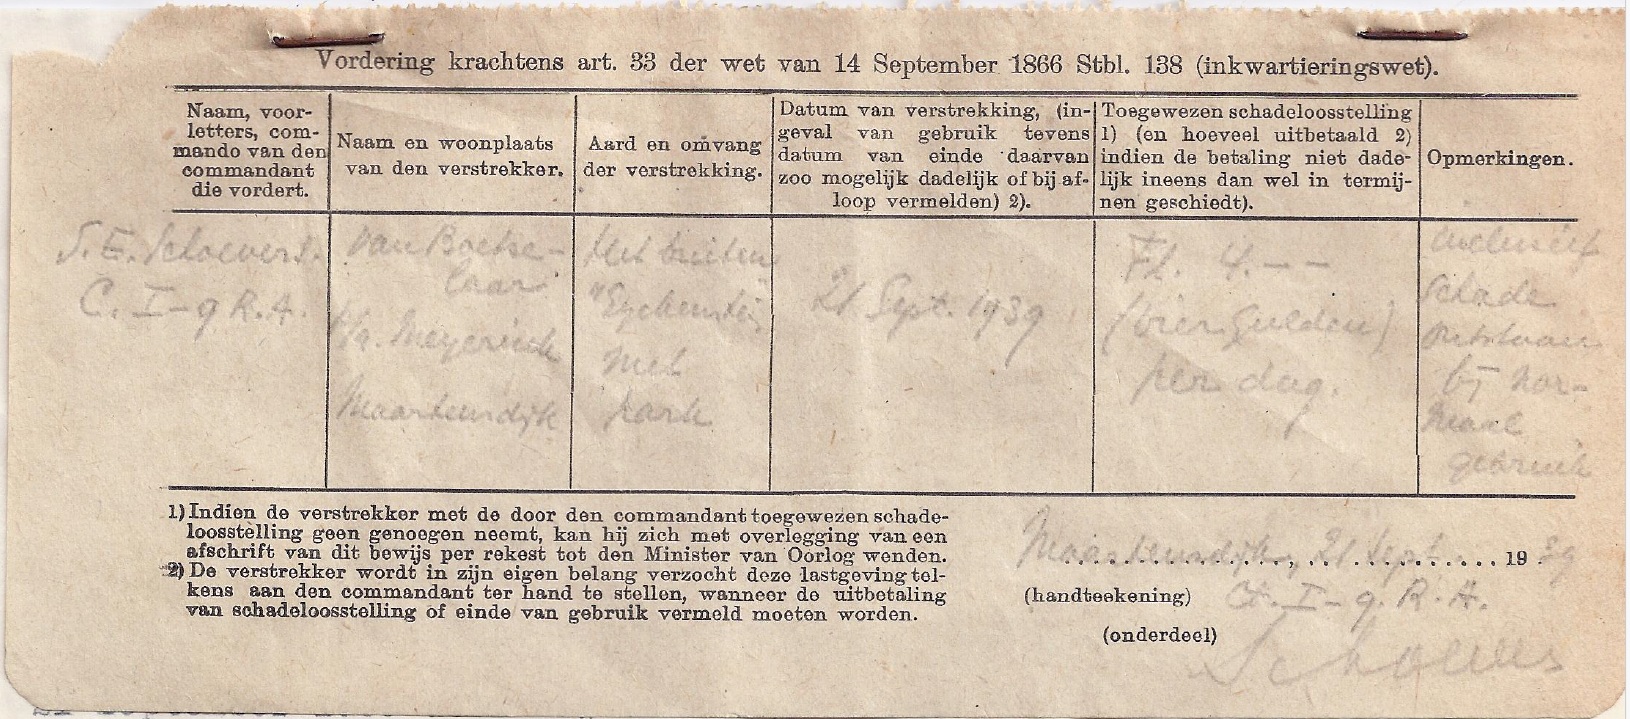 Vordering krachtens art. 33 der wet van 14 September 1866 Stbl. 138 (inkwartieringswet).
Naam, voor-
letters, com-
mando van den
commandant
die vordert.
Naam en woonplaats
van den verstrekker.
Aard en omvang
der verstrekking.
Datum van verstrekking, (in-
geval van gebruik tevens
datum van einde daarvan
zoo mogelijk dadelijk of bij af-
loop vermelden) 2).
Toegewezen schadeloosstelling
1) (en hoeveel uitbetaald 2)
indien de betaling niet dade-
lijk ineens dan wel in termij-
nen geschiedt).
Opmerkingen.
S. E. Schoevers.
C. I-9 R.A.
van Boetse-
laar
Maartensdijk
Het buiten
met
park
21 Sept. 1939
Fl. 4.--
(vier Gulden)
per dag.
schade
ontstaan
bij nor-
maal
gebruik
1) Indien de verstrekker met de door den commandant toegewezen schade-
loosstelling geen genoegen neemt, kan hij zich met overlegging van een
afschrift van dit bewijs per rekest tot den Minister van Oorlog wenden.
2) De verstrekker wordt in zijn eigen belang verzocht deze lastgeving tel-
kens aan den commandant ter hand te stellen, wanneer de uitbetaling
van schadeloosstelling of einde van gebruik vermeld moeten worden.
Maartensdijk, 21 Sept. 1939
(handteekening) C. I-9. R.A.
(onderdeel)
Schoevers